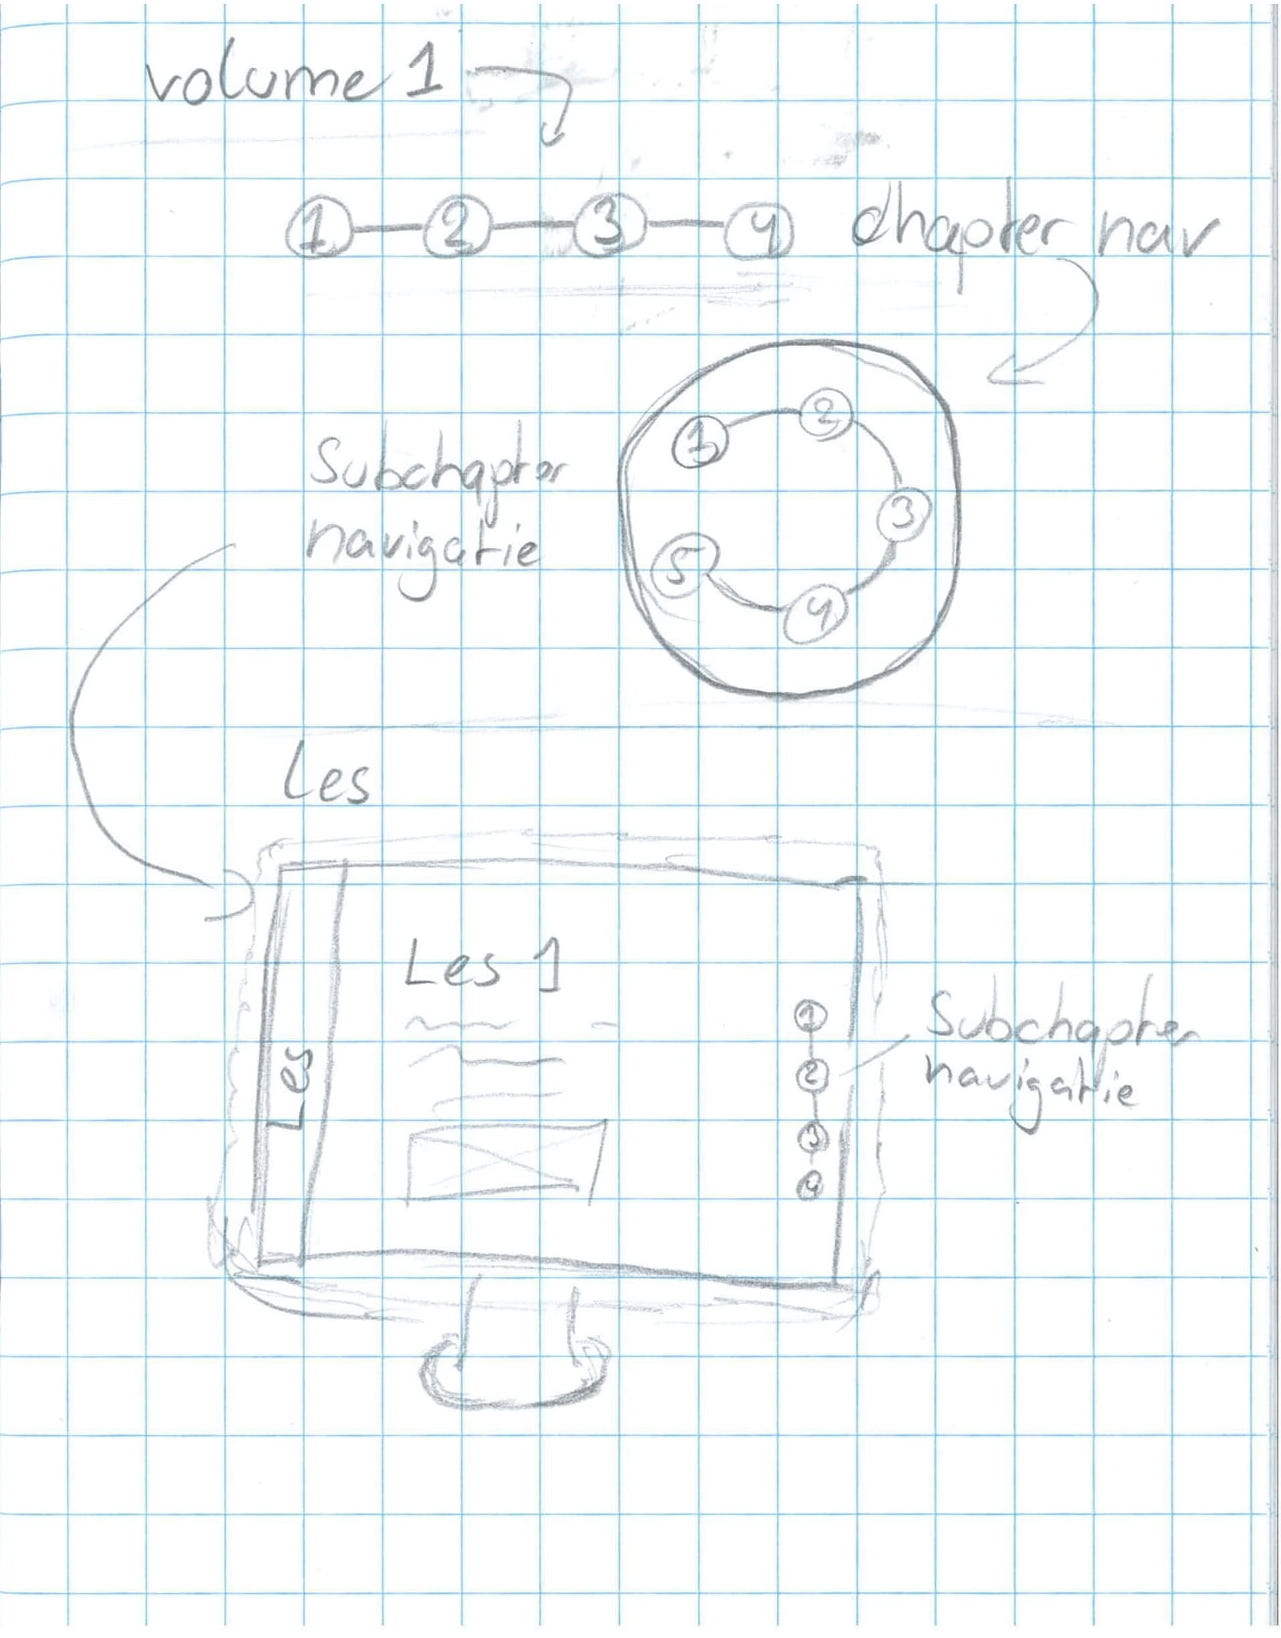 volume 1
1 2 3 4 chapter nav
1 2 3 4 5
Subchapter
navigatie
Les
Les
Les 1
1
2
3
4
Subchapter
navigatie